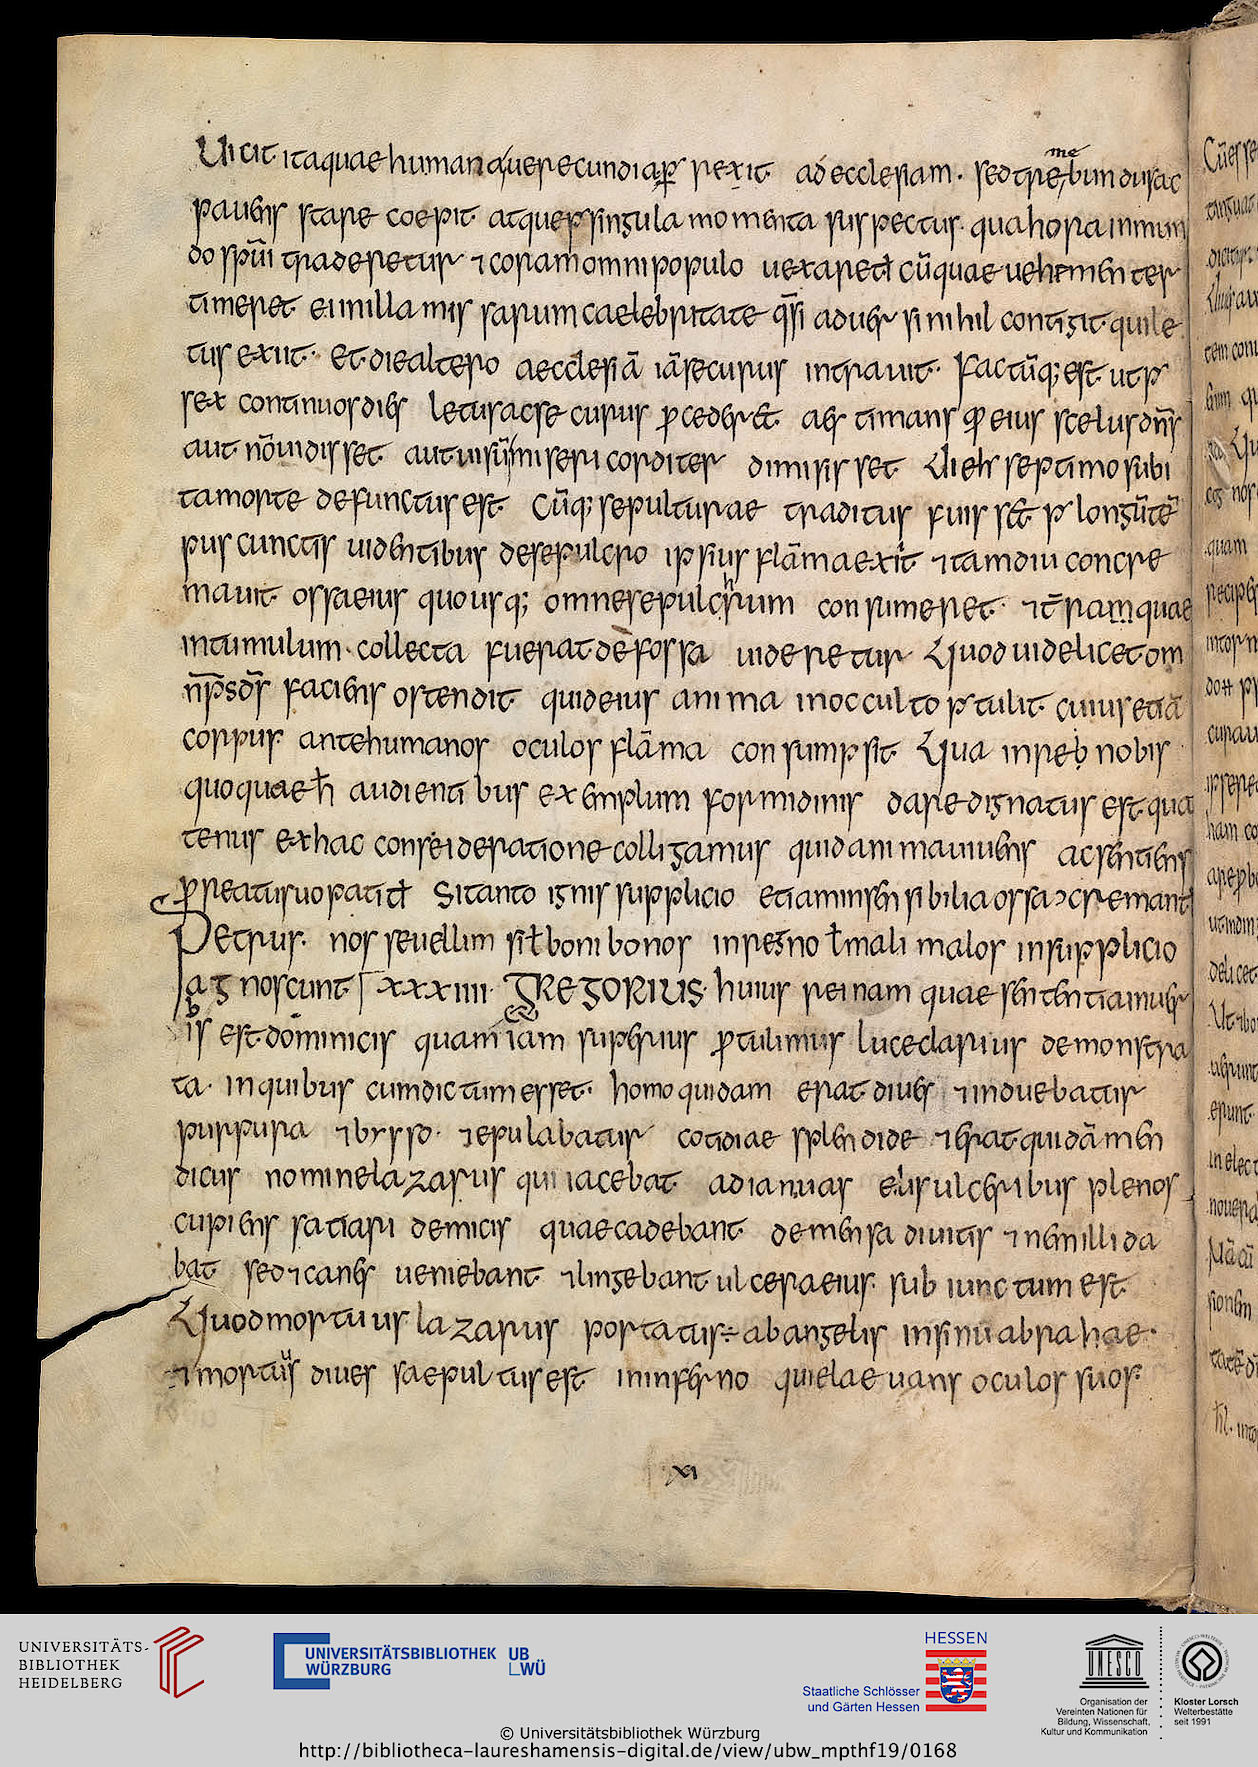 Uicit itaquae human q uerecundia per rexit ad ecclesiam. sed trembundus ac
pauens stare coepit atque p singula momenta suspectus. qua hora inmun
do spūi traderetur ⁊ coram omni populo uexaret cūquae uehementer
timeret ei in illa missarum caelebritate adubr si nihil contigit qui le
tus exiit. Et die altero aecclesiā iā securus intrauit. factūq; est ut p
sex continuos dies letus ac securus pcedret timans eius scelus dn̄s
aut nōuidisset aut uisū misericorditer dimisisset Die septimo subi
ta morte defunctus est Cūq; sepulturae traditus longū tē
pus cunctis uidentibus de sepulcro ipsius flāma exiit ⁊ tam diu concre
mauit ossa eius quousq; omne sepulcrum consumeret ⁊ quae
in tumulum collecta fuerat defossa uideretur Quod uidelicet om
faciens ostendit quid eius anima in occulto ptulit cuius etiā
corpus ante humanos oculos flāma consumpsit Qua in reb nobis
quoquae h audientibus exemplum formidinis dare dignatus est qua
tenus ex hac conseideratione colligamus quid anima uiuens ac sentiens
p reatu suo patit Si tanto ignis supplicio etiam insensibilia ossa cremant
Petrus. nosse uellim si t boni bonos in regno t mali malos in supplicio
ag noscunt xxxiiii. GREGORIUS. huius rei nam quae sententia in uer
bis est dominicis quam iam superius ptulimus luce clarius demonstra
ta. in quibus cum dictum esset. homo quidam erat diues ⁊ induebatur
purpura ⁊ bysso. ⁊ epulabatur cotidiae splendide ⁊ erat quidā men
dicus nomine lazarus qui iacebat ad ianuas eius ulceribus plenos
cupiens satiari de micis quae cadebant de mensa diuitis ⁊ nemo illi da
bat sed ⁊ canes ueniebant ⁊ lingebant ulcera eius. sub iunctum est
Quod mortuus lazarus portatus ab angelis in sinu abrahae.
⁊ mortuus diues saepultus est in inferno qui elaeuans oculos suos.
xi
UNIVERSITÄTS-
BIBLIOTHEK
HEIDELBERG
UNIVERSITÄTSBIBLIOTHEK
WÜRZBURG
UB
WÜ
HESSEN
Staatliche Schlösser
und Gärten Hessen
UNESCO
Organisation der
Vereinten Nationen für
Bildung, Wissenschaft,
Kultur und Kommunikation
Kloster Lorsch
Welterbestätte
seit 1991
© Universitätsbibliothek Würzburg
http://bibliotheca-laureshamensis-digital.de/view/ubw_mpthf19/0168